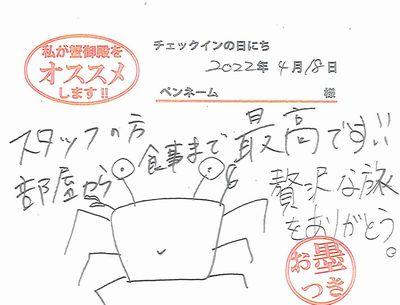 私が蟹御殿を
オススメ
します!!
チェックインの日にち
2022年4月18日
ペンネーム 様
スタッフの方
部屋から食事まで最高です!!
贅沢な旅
をありがとう。
お墨
つき